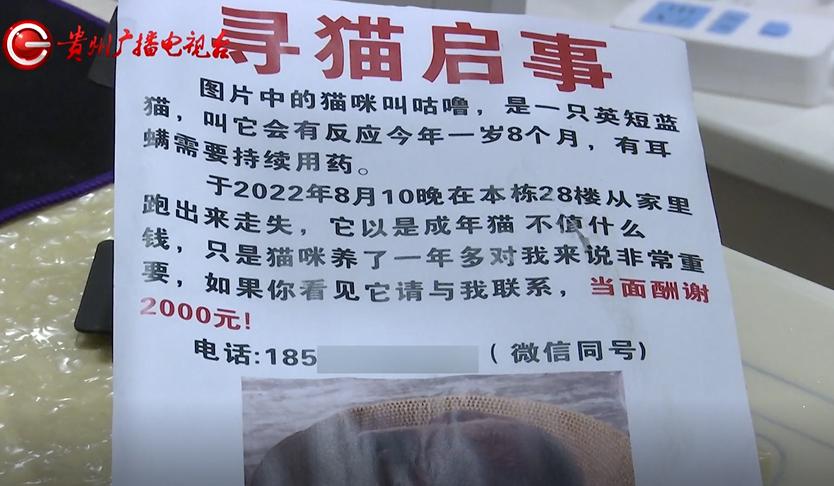 贵州广播电视台
寻猫启事
图片中的猫咪叫咕噜，是一只英短蓝
猫，叫它会有反应今年一岁8个月，有耳
螨需要持续用药。
于2022年8月10晚在本栋28楼从家里
跑出来走失，它以是成年猫 不值什么
钱，只是猫咪养了一年多对我来说非常重
要，如果你看见它请与我联系，当面酬谢
2000元!
电话:185 （微信同号)